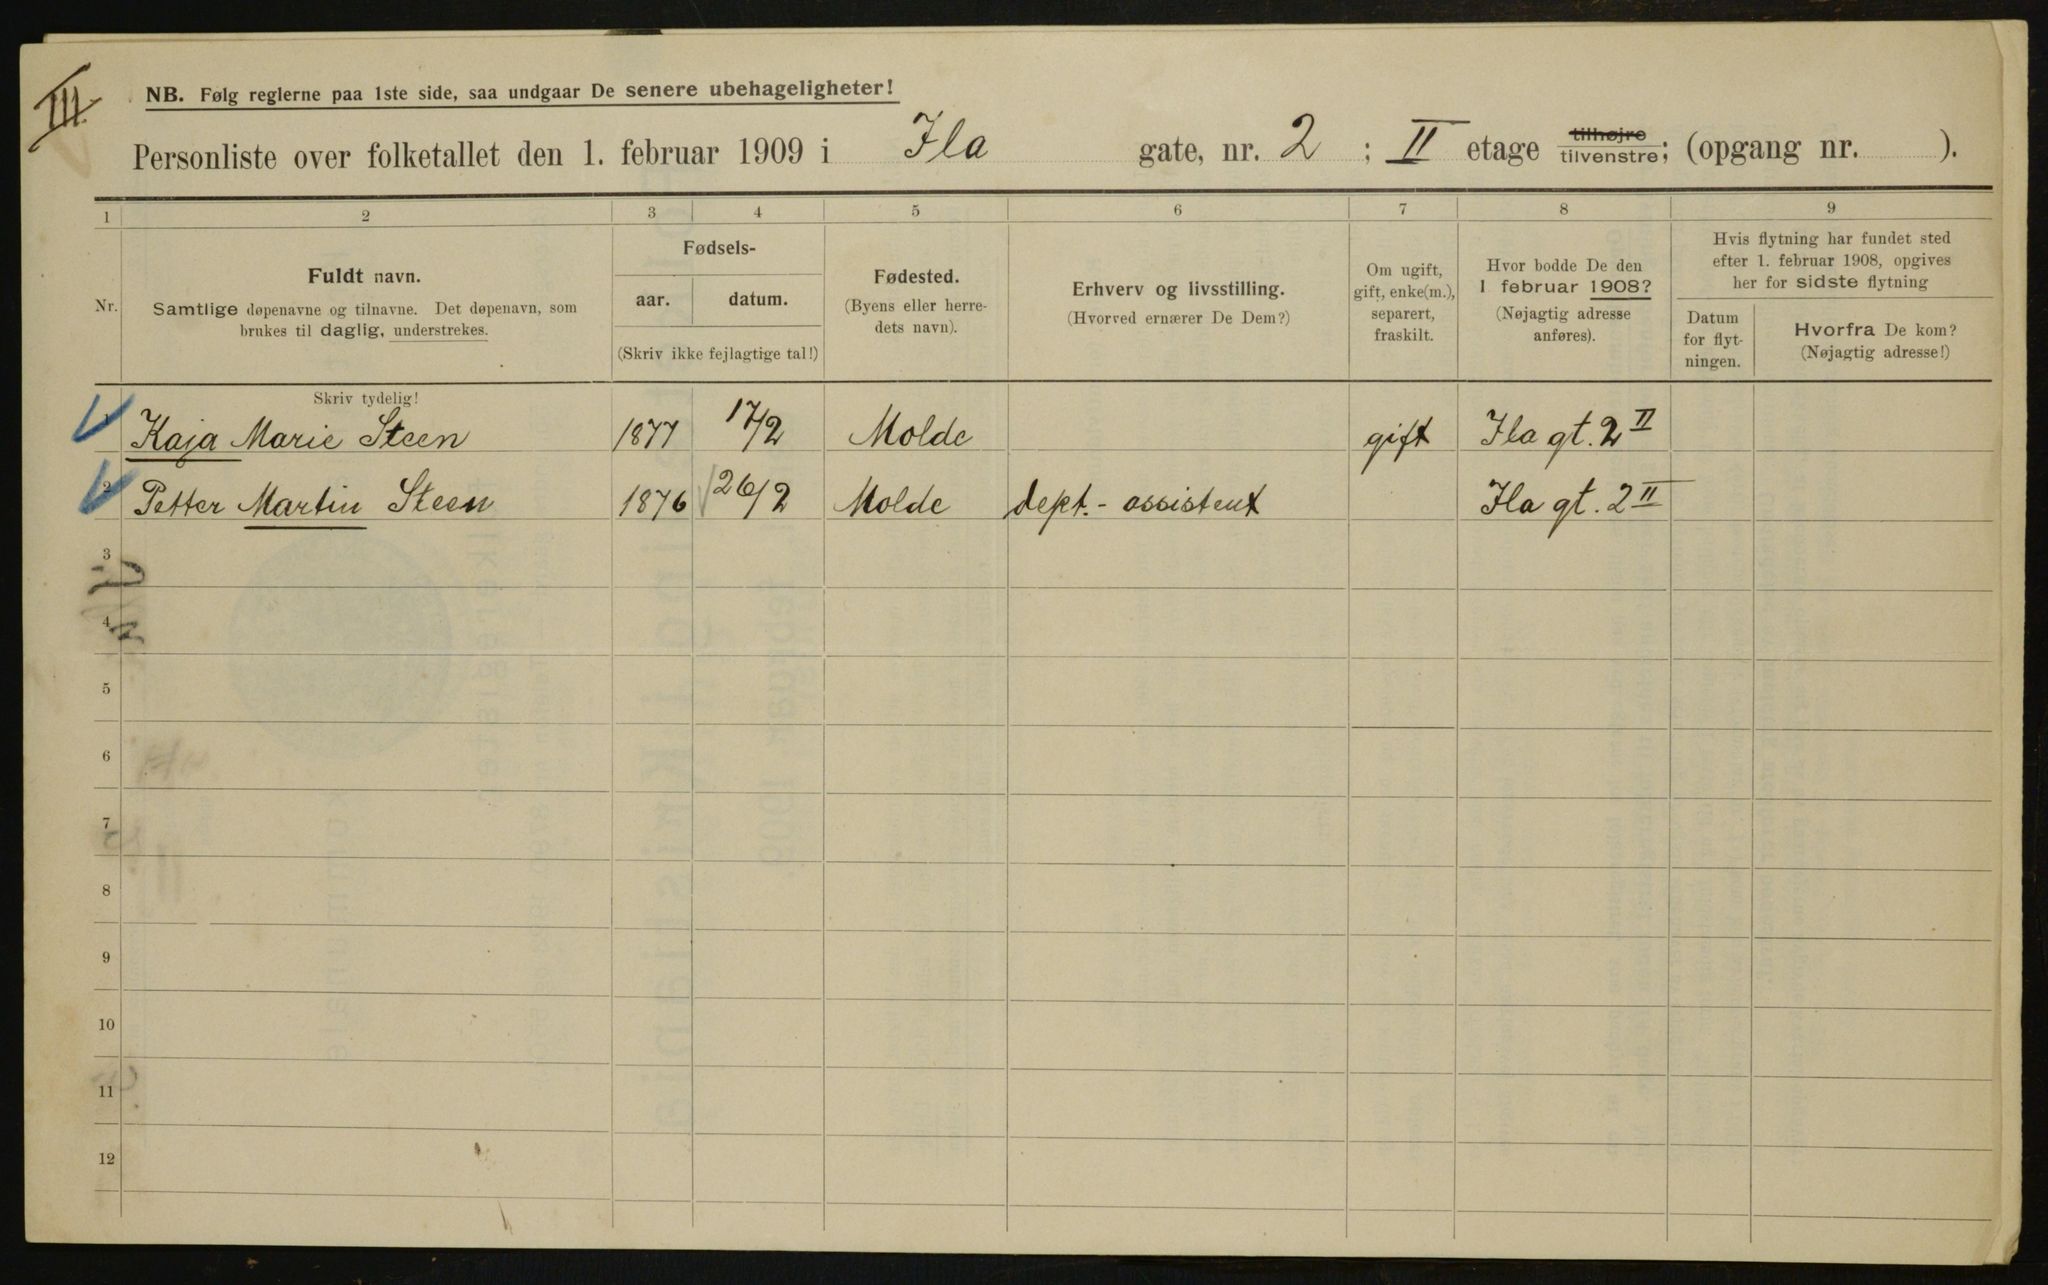 III.
NB. Følg reglerne paa 1ste side, saa undgaar De senere ubehageligheter!
Personliste over folketallet den 1. februar 1909 i Ila gate, nr. 2 ; II etage tilhøjre tilvenstre; (opgang nr. ).
1 2 3 4 5 6 7 8 9
Nr.
Fuldt navn.
Samtlige døpenavne og tilnavne. Det døpenavn, som
brukes til daglig, understrekes.
Fødsels-
aar. datum.
(Skriv ikke fejlagtige tal!)
Fødested.
(Byens eller herre-
dets navn).
Erhverv og livsstilling.
(Hvorved ernærer De Dem?)
Om ugift,
gift, enke(m.),
separert,
fraskilt.
Hvor bodde De den
1 februar 1908?
(Nøjagtig adresse
anføres).
Hvis flytning har fundet sted
efter 1. februar 1908, opgives
her for sidste flytning
Datum
for flyt-
ningen.
Hvorfra De kom?
(Nøjagtig adresse!)
Skriv tydelig!
1 Kaja Marie Steen 1877 17/2 Molde gift Ila gt. 2 II
2 Petter Martin Steen 1876 26/2 Molde dept.- assistent Ila gt. 2 II
3
4
5
6
7
8
9
10
11
12